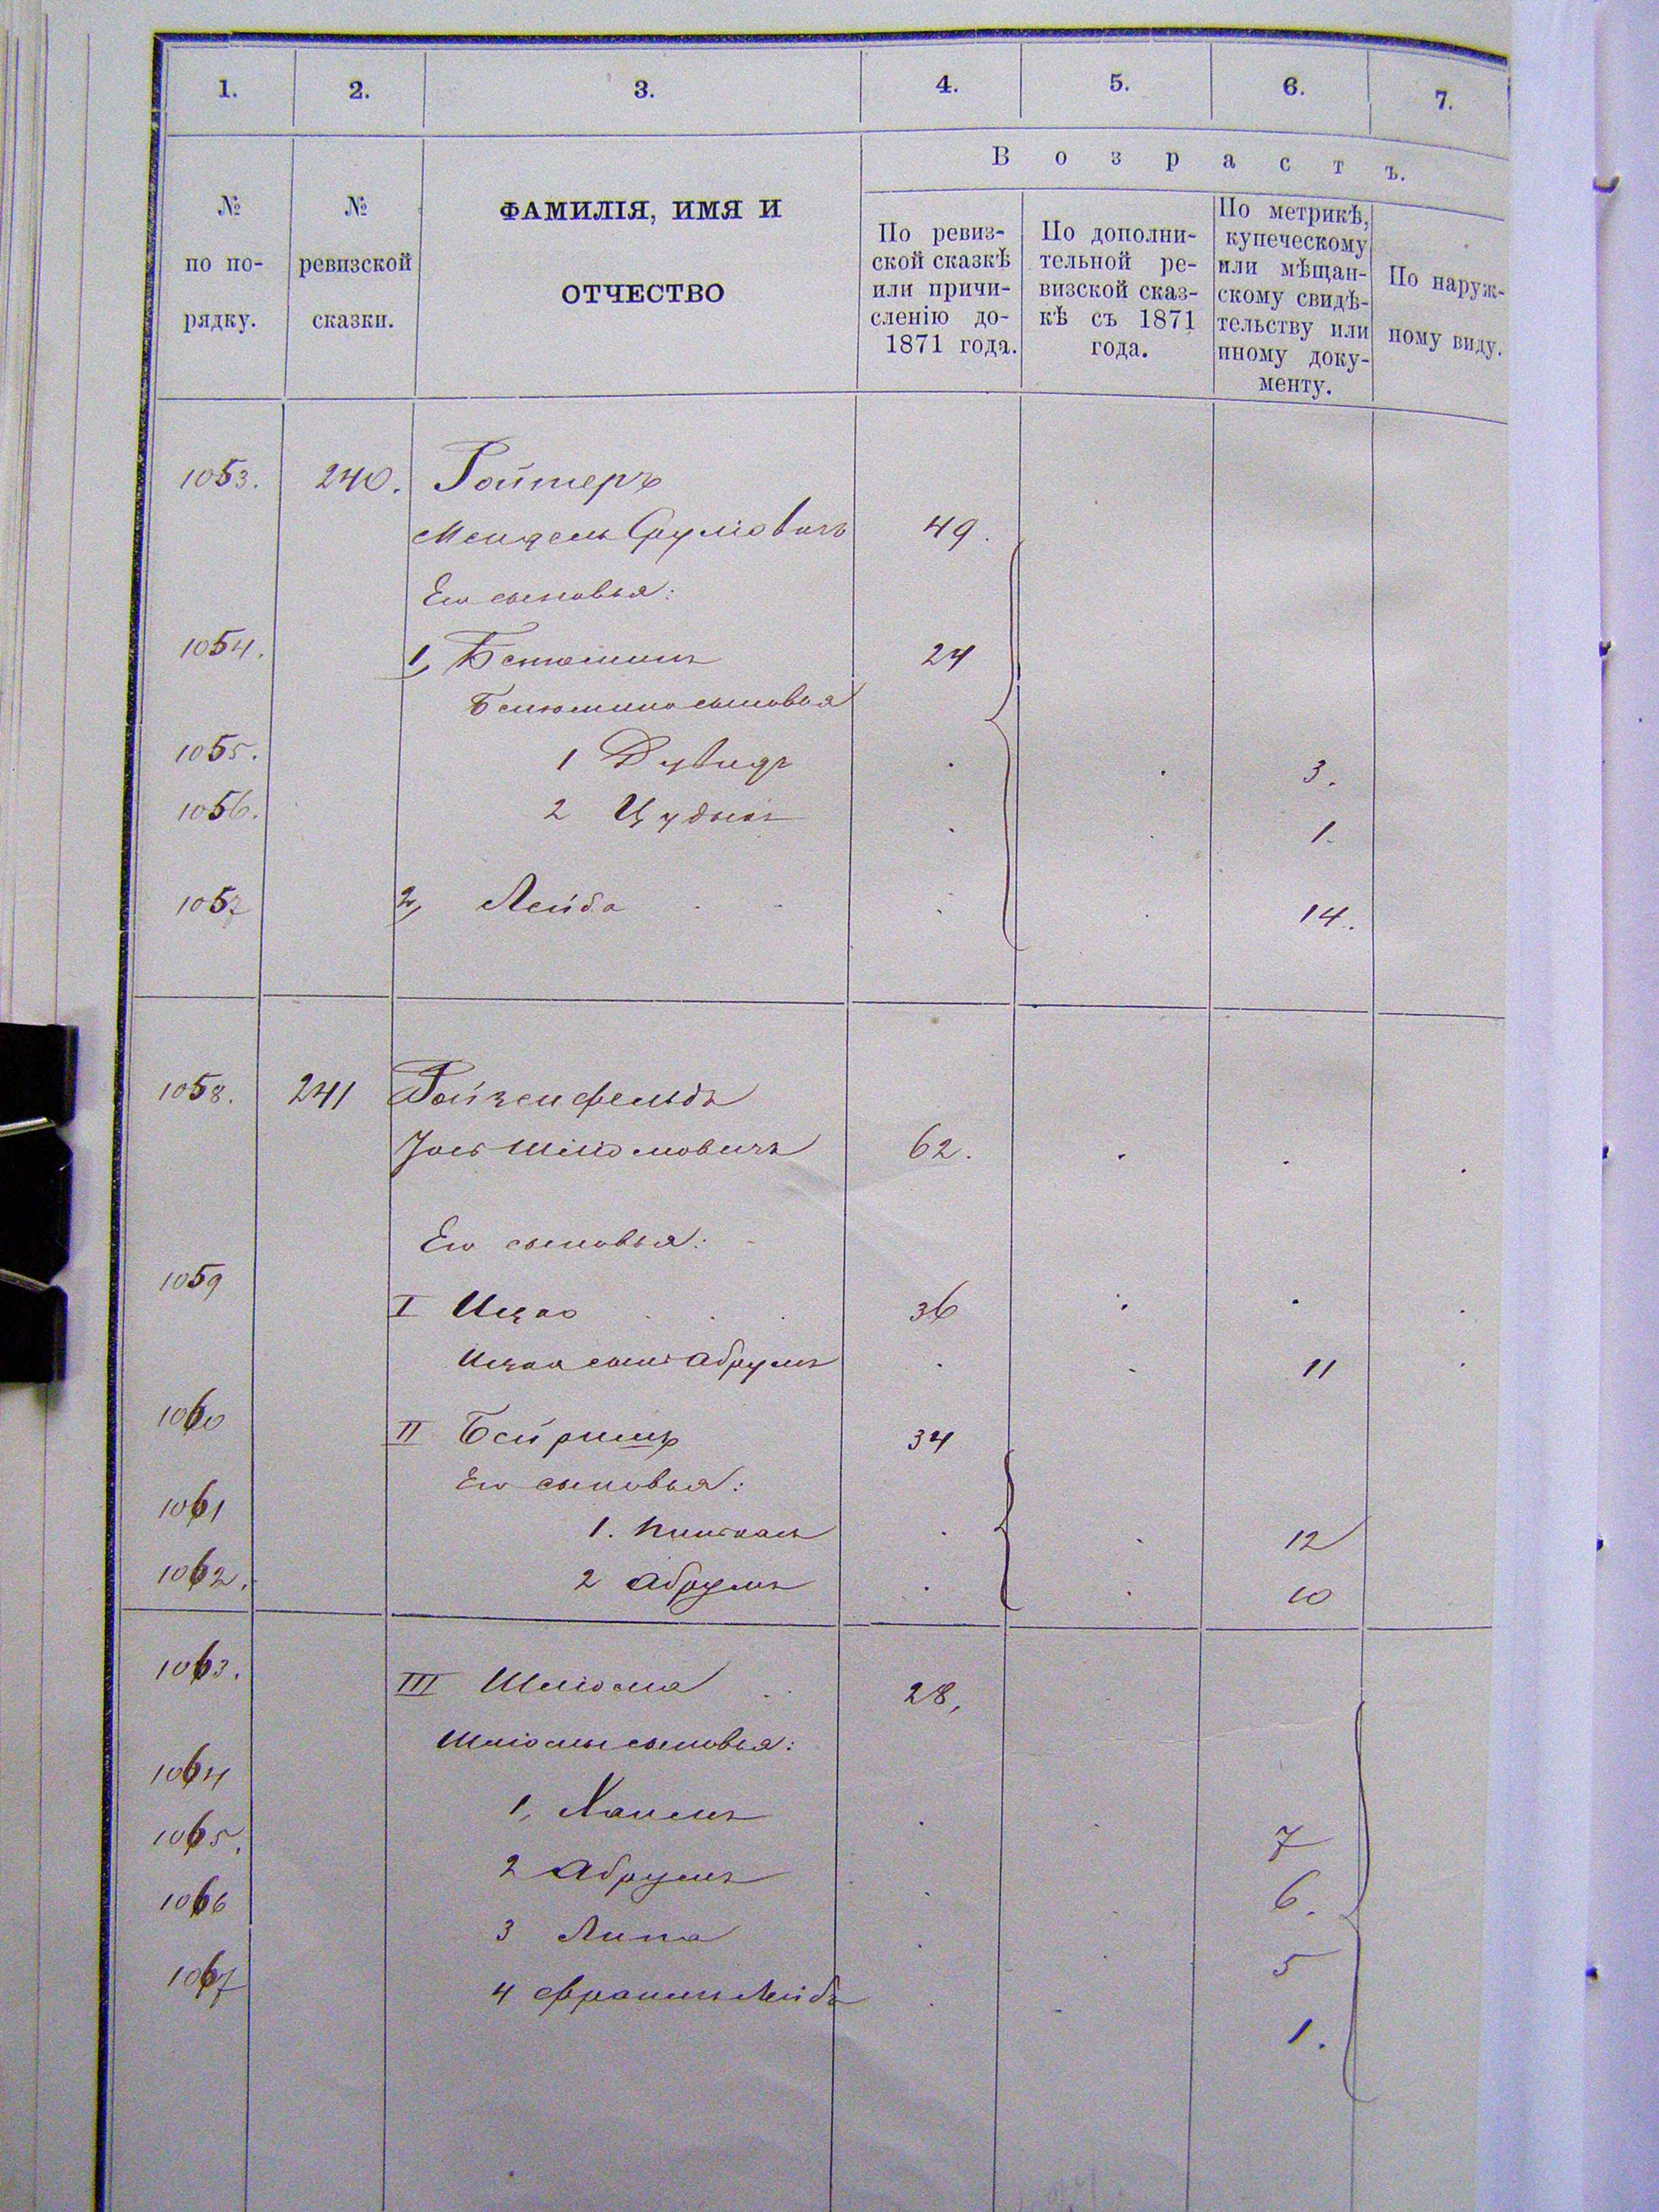 1. 2. 3. 4. 5. 6. 7.
Возрастъ.
№ по по-рядку.
№ ревизской сказки.
ФАМИЛІЯ, ИМЯ И
ОТЧЕСТВО
По ревиз-
ской сказкѣ
или причи-
сленію до-
1871 года.
По дополни-
тельной ре-
визской сказ-
кѣ съ 1871
года.
По метрикѣ,
купеческому
или мѣщан-
скому свидѣ-
тельству или
иному доку-
менту.
По наруж-
ному виду.
1053. 240. Ройтеръ
Мендель Срулiовичъ 49.
Его сыновья:
1054. 1, Бенюминъ 24
Бенюмина сыновья
1055. 1 Дувидъ 3.
1056. 2 1.
1057 2, Лейба 14.
1058. 241 Ройзенфельдъ
Іось Шліомовичъ 62.
Его сыновья:
1059 I Ицко 36
Ицка сынъ Абрумъ 11
1060 II Бейришъ 34
Его сыновья:
1061 1. Пинкасъ 12
1062. 2 Абрумъ 10
1063. III Шліома 28,
Шліомы сыновья:
1064 1, Хаимъ 7
1065. 2 Абрумъ 6.
1066 3 Липа 5
1067 4 Фроимъ Лейбъ 1.